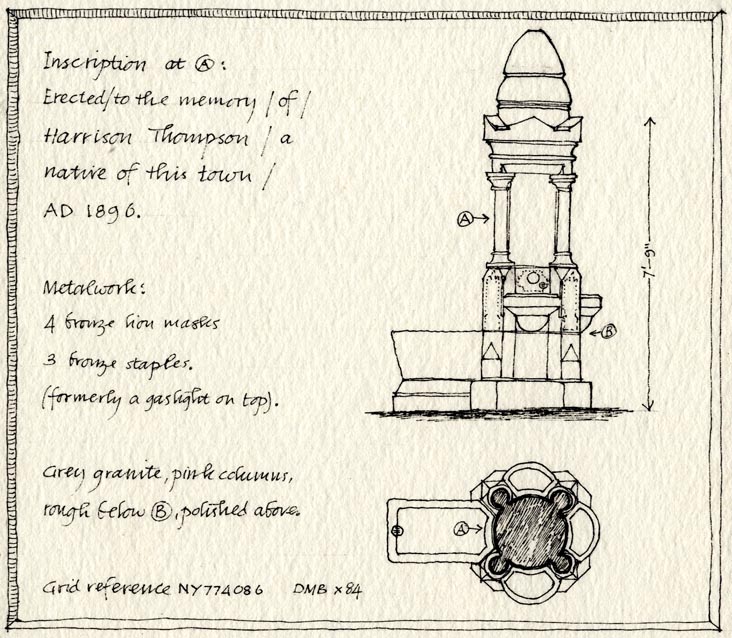 Inscription at Ⓐ:
Erected/to the memory / of /
Harrison Thompson / a
native of this town /
AD 1896.
Metalwork:
4 bronze lion masks
3 bronze staples.
(formerly a gaslight on top).
Grey granite, pink columns,
rough below Ⓑ, polished above.
Grid reference NY774086 DMB x84
Ⓐ
7'-9"
Ⓑ
Ⓐ